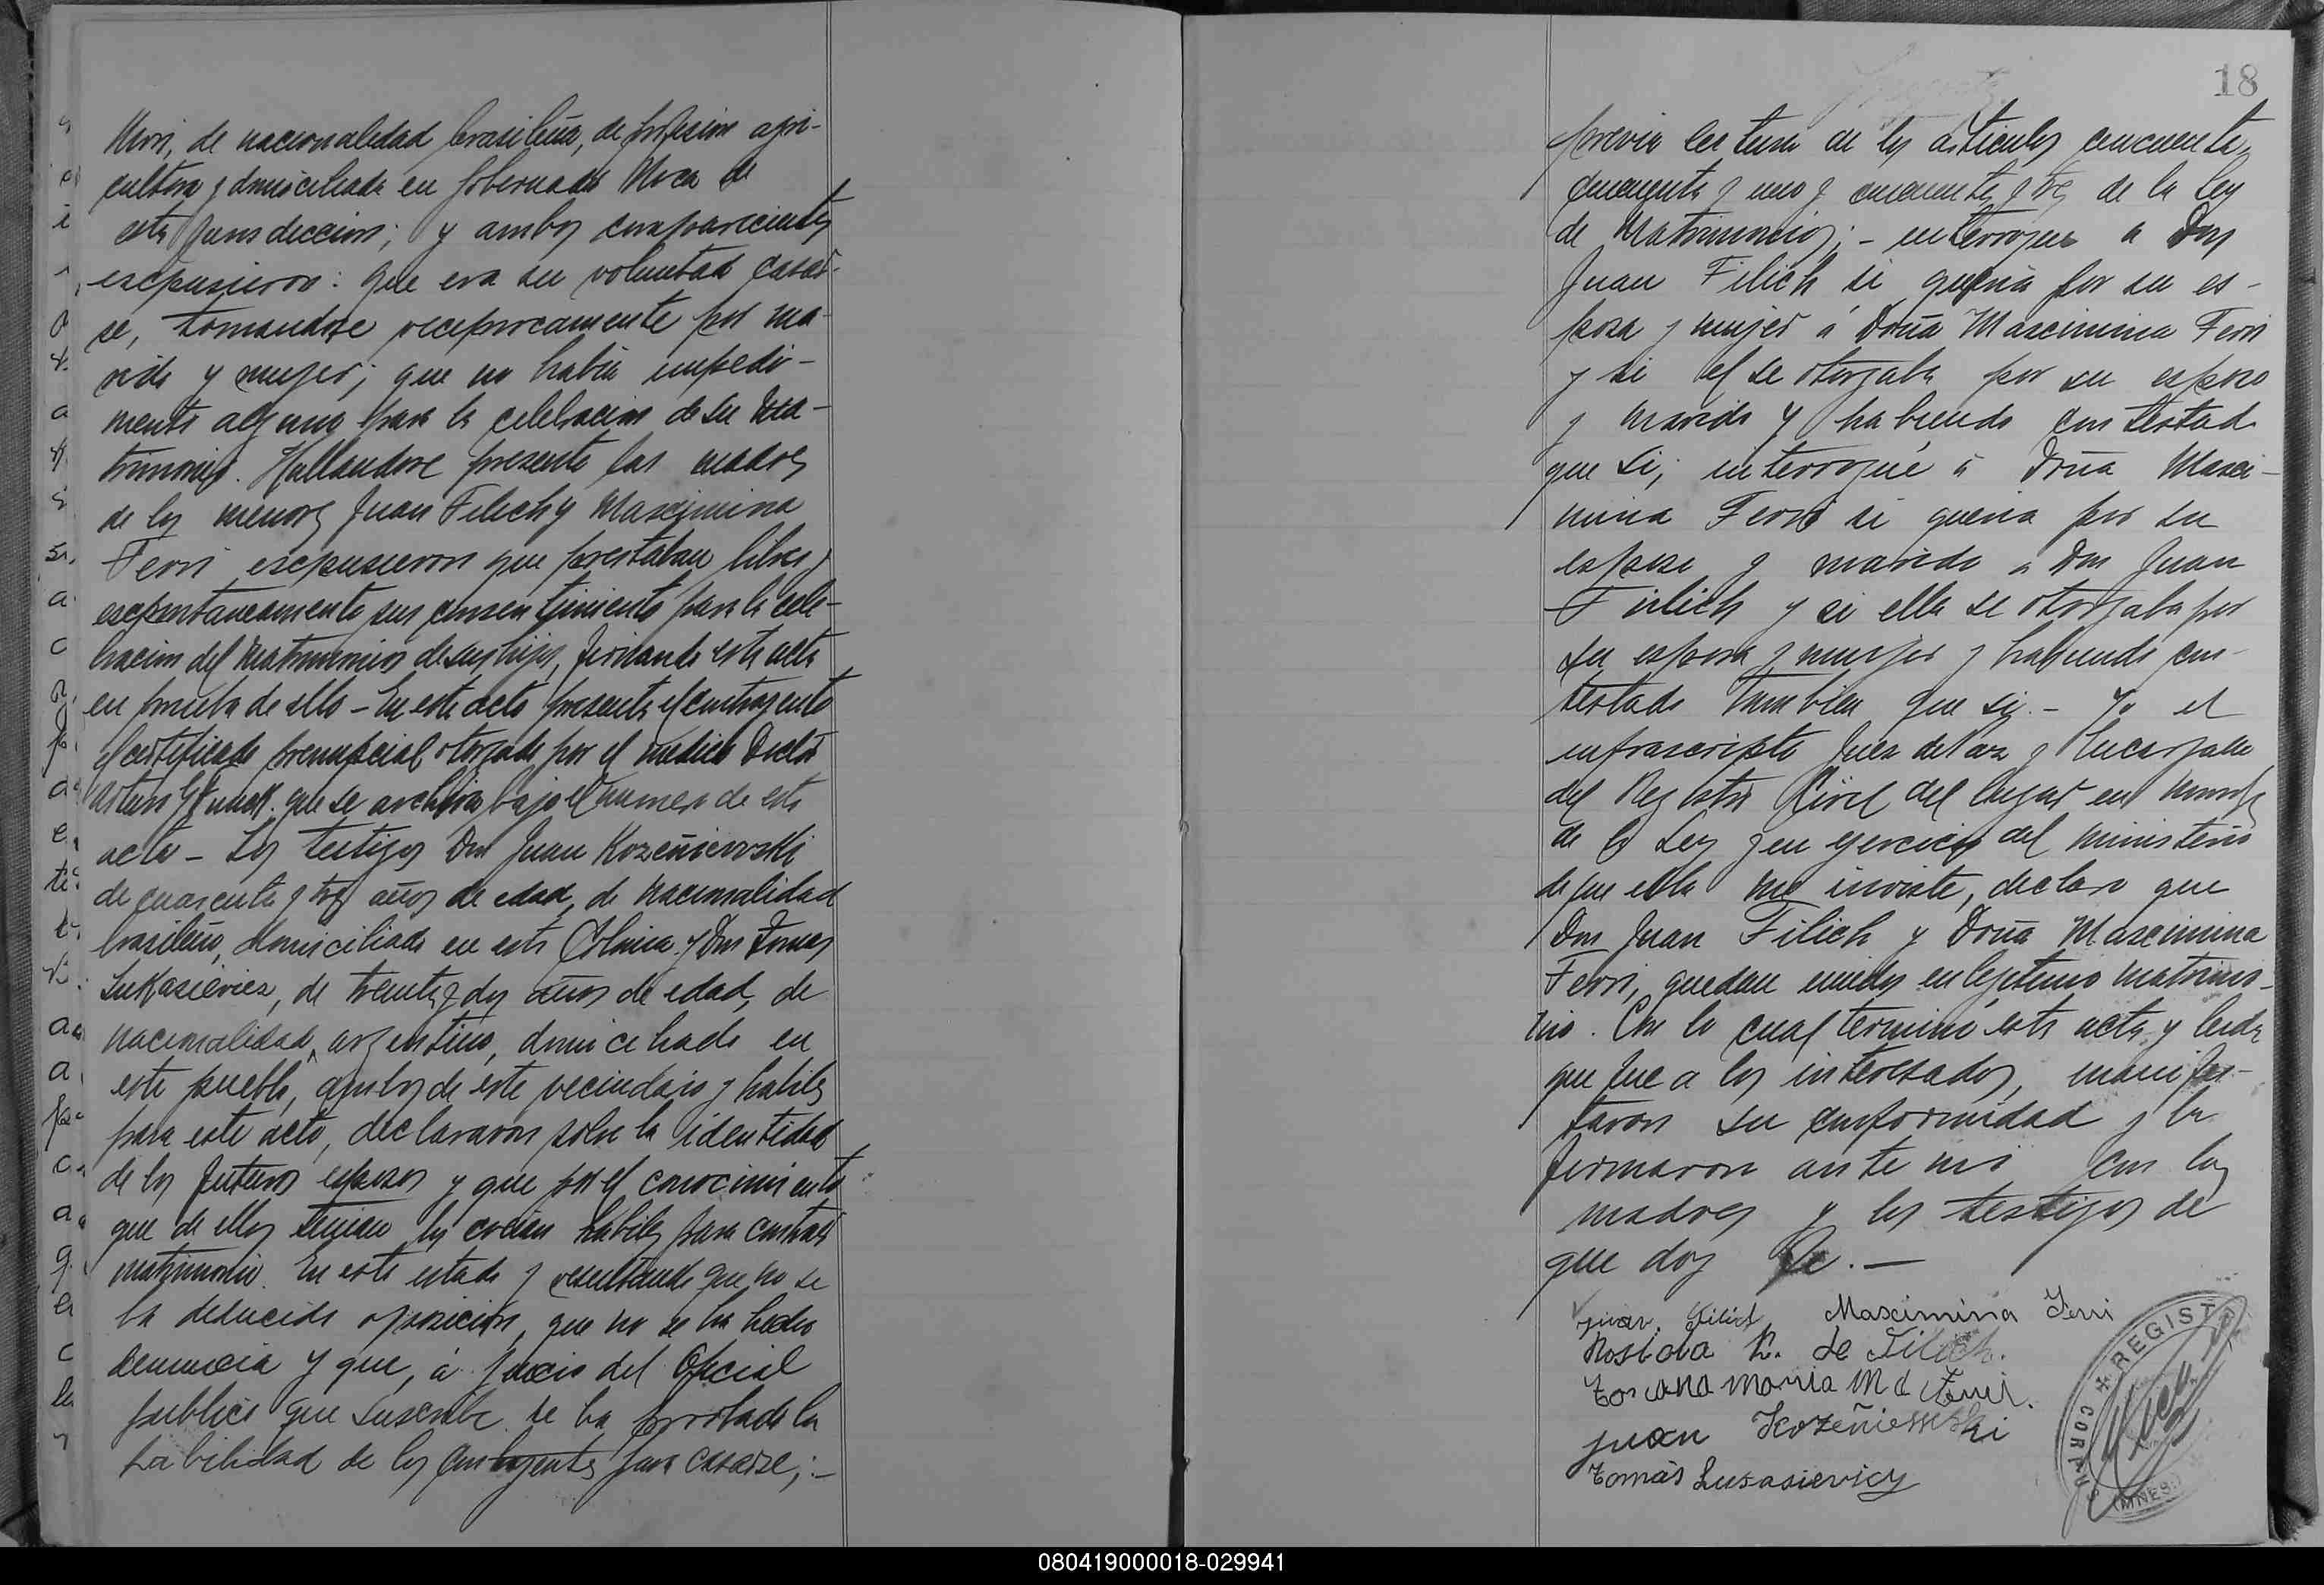 Mori, de nacionalidad brasileña, de profesion agri-
cultora y domiciliada en Gobernador Roca de
esta jurisdiccion; y ambos comparecientes
escpusieron: que era su voluntad casar-
se, tomandose reciprocamente por ma-
rido y mujer; que no habia impedi-
mento alguno para la celebracion de su ma-
trimonio. Hallandose presente las madres
de los menores Juan Filich y Mascimina
Ferri escpusieron que prestaban libre y
escpontaneamente sus consentimiento para la cele-
bracion del matrimonio de sus hijos, firmando esta acta
en prueba de ello - En este acto presenta el contrayente
el certificado prenupcial otorgado por el medico Doctor
Arturo que se archiva bajo el numero de esta
acta - Los testigos Don Juan Kozeñiewski
de cuarenta y tres años de edad, de nacionalidad
brasileño, domiciliado en esta Colonia y Don Tomas
Lukasievicz, de treinta y dos años de edad, de
nacionalidad argentino, domiciliado en
este pueblo, ambos de este vecindario y habiles
para este acto, declararon sobre la identidad
de los futuros esposos y que por el conocimiento
que de ellos tenian los creian habiles para contraer
matrimonio. En este estado y resultando que no se
ha deducido oposicion, que no se ha hecho
denuncia y que, á juicio del Oficial
publico que suscribe se ha probado la
habilidad de los contrayentes para casarse; -
18
previa lectura de los articulos cincuenta,
cincuenta y uno y cincuenta y tres de la ley
de Matrimonio; - interrogue a Don
Juan Filich si queria por su es-
posa y mujer á Doña Mascimina Ferri
y si el se otorgaba por su esposo
y marido y habiendo contestado
que si; interrogué á Doña Masci-
mina Ferri si queria por su
esposo y marido a Don Juan
Filich y si ella se otorgaba por
su esposa y mujer y habiendo con-
testado tambien que si. - Yo el
infrascripto Juez de Paz y Encargado
del Registro Civil del lugar en nombre
de la Ley y en ejercicio del ministerio
de que ella me inviste, declaro que
Don Juan Filich y Doña Mascimina
Ferri, quedan unidos en legitimo matrimo-
nio. Con lo cual terminé esta acta y leida
que fue a los interesados, manifes-
taron su conformidad y la
firmaron ante mi con las
madres y los testigos de
que doy fe. -
Juan Filich Mascimina Ferri
Rosida R. de Filich.
Toscana Maria M d Ferri.
Juan Kozeñiewski
Tomás Lukasievicz
REGIST
CORPUS
(MNES.)
080419000018-029941